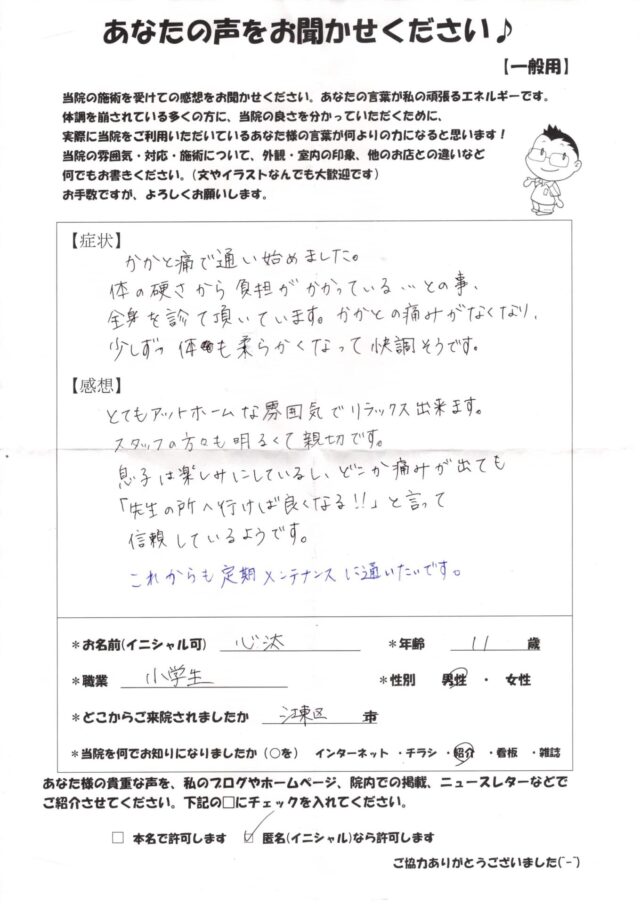 あなたの声をお聞かせください♪
【一般用】
当院の施術を受けての感想をお聞かせください。あなたの言葉が私の頑張るエネルギーです。
体調を崩されている多くの方に、当院の良さを分かっていただくために、
実際に当院をご利用いただいているあなた様の言葉が何よりの力になると思います！
当院の雰囲気・対応・施術について、外観・室内の印象、他のお店との違いなど
何でもお書きください。（文やイラストなんでも大歓迎です）
お手数ですが、よろしくお願いします。
【症状】
かかと痛で通い始めました。
体の硬さから負担がかかっている…との事、
全身を診て頂いています。かかとの痛みがなくなり、
少しずつ体も柔らかくなって快調そうです。
【感想】
とてもアットホームな雰囲気でリラックス出来ます。
スタッフの方々も明るくて親切です。
息子は楽しみにしているし、どこか痛みが出ても
「先生の所へ行けば良くなる!!」と言って
信頼しているようです。
これからも定期メンテナンスに通いたいです。
＊お名前(イニシャル可) 心汰 ＊年齢 11 歳
＊職業 小学生 ＊性別 男性 ・ 女性
＊どこからご来院されましたか 江東区 市
＊当院を何でお知りになりましたか（○を） インターネット ・チラシ ・紹介 ・看板 ・雑誌
あなた様の貴重な声を、私のブログやホームページ、院内での掲載、ニュースレターなどで
ご紹介させてください。下記の□にチェックを入れてください。
□ 本名で許可します ☑ 匿名(イニシャル)なら許可します
ご協力ありがとうございました(^-^)